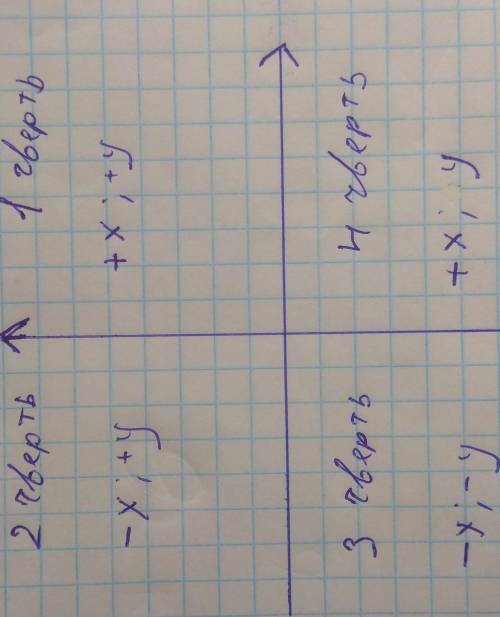 2 чверть
-x ; +y
1 чверть
+x ; +y
3 чверть
-x ; -y
4 чверть
+x ; y